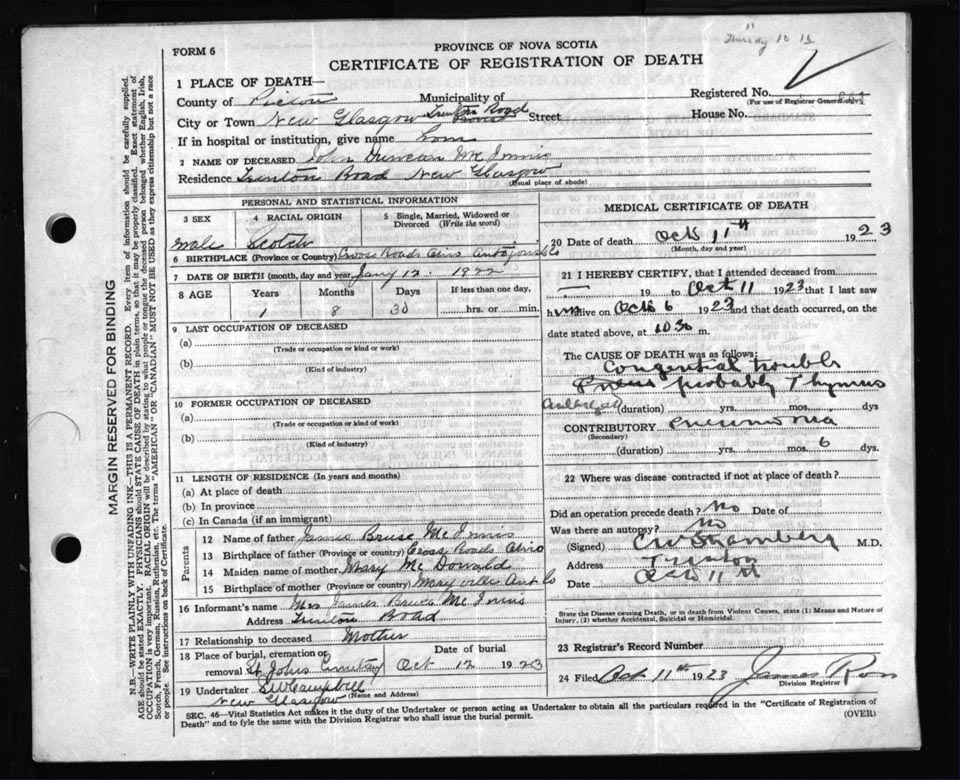 Thursday 10
FORM 6
PROVINCE OF NOVA SCOTIA
CERTIFICATE OF REGISTRATION OF DEATH
1 PLACE OF DEATH—
County of Pictou Municipality of
Registered No.
(For use of Registrar General only)
City or Town New Glasgow Trenton Road Street
House No.
If in hospital or institution, give name home
2 NAME OF DECEASED John Duncan McInnis
Residence Trenton Road New Glasgow
(Usual place of abode)
PERSONAL AND STATISTICAL INFORMATION
3 SEX
4 RACIAL ORIGIN
5 Single, Married, Widowed or Divorced (Write the word)
male Scotch
6 BIRTHPLACE (Province or Country) Cross Roads Ohio Antigonish Co
7 DATE OF BIRTH (month, day and year) Jany 12. 1922
8 AGE Years Months Days If less than one day,
1 8 30 ........hrs. or........min.
9 LAST OCCUPATION OF DECEASED
(a)
(Trade or occupation or kind or work)
(b)
(Kind of industry)
10 FORMER OCCUPATION OF DECEASED
(a)
(Trade or occupation or kind of work)
(b)
(Kind of industry)
11 LENGTH OF RESIDENCE (In years and months)
(a) At place of death
(b) In province
(c) In Canada (if an immigrant)
Parents
12 Name of father James Bruce McInnis
13 Birthplace of father (Province or country) Cross Roads Ohio
14 Maiden name of mother Mary McDonald
15 Birthplace of mother (Province or country) Maryville Ant Co
16 Informant's name Mrs James Bruce McInnis
Address Trenton Road
17 Relationship to deceased Mother
18 Place of burial, cremation or removal St Johns Cemetery
Date of burial
Oct 12 1923
19 Undertaker S W Campbell
New Glasgow (Name and Address)
MEDICAL CERTIFICATE OF DEATH
20 Date of death Oct 11th 1923
(Month, day and year)
21 I HEREBY CERTIFY, that I attended deceased from
— 19 to Oct 11 1923 that I last saw
him alive on Oct 6 1923 and that death occurred, on the
date stated above, at 1030 m.
The CAUSE OF DEATH was as follows:
Congenital trouble
probably Thymus
enlarged (duration) yrs. mos. dys
CONTRIBUTORY pneumonia
(Secondary)
(duration) yrs. mos. 6 dys.
22 Where was disease contracted if not at place of death?
Did an operation precede death? No Date of
Was there an autopsy? no
(Signed) M.D.
Address Trenton
Date Oct 11
State the Disease causing Death, or in death from Violent Causes, state (1) Means and Nature of
Injury, (2) whether Accidental, Suicidal or Homicidal.
23 Registrar's Record Number
24 Filed Oct 11th 1923 James Ross
Division Registrar
SEC. 46—Vital Statistics Act makes it the duty of the Undertaker or person acting as Undertaker to obtain all the particulars required in the "Certificate of Registration of
Death" and to fyle the same with the Division Registrar who shall issue the burial permit.
(OVER)
MARGIN RESERVED FOR BINDING
N.B.—WRITE PLAINLY WITH UNFADING INK—THIS IS A PERMANENT RECORD. Every item of information should be carefully supplied.
AGE should be stated EXACTLY. PHYSICIANS should STATE CAUSE OF DEATH in plain terms, so that it may be properly classified. Exact statement of
OCCUPATION is very important. RACIAL ORIGIN will be described by stating to what people or tongue the deceased person belonged whether English, Irish,
Scotch, French, German, Russian, Ruthenian, etc. The terms "AMERICAN" OR "CANADIAN" MUST NOT BE USED as they express citizenship but not a race
or people. See instructions on back of Certificate.